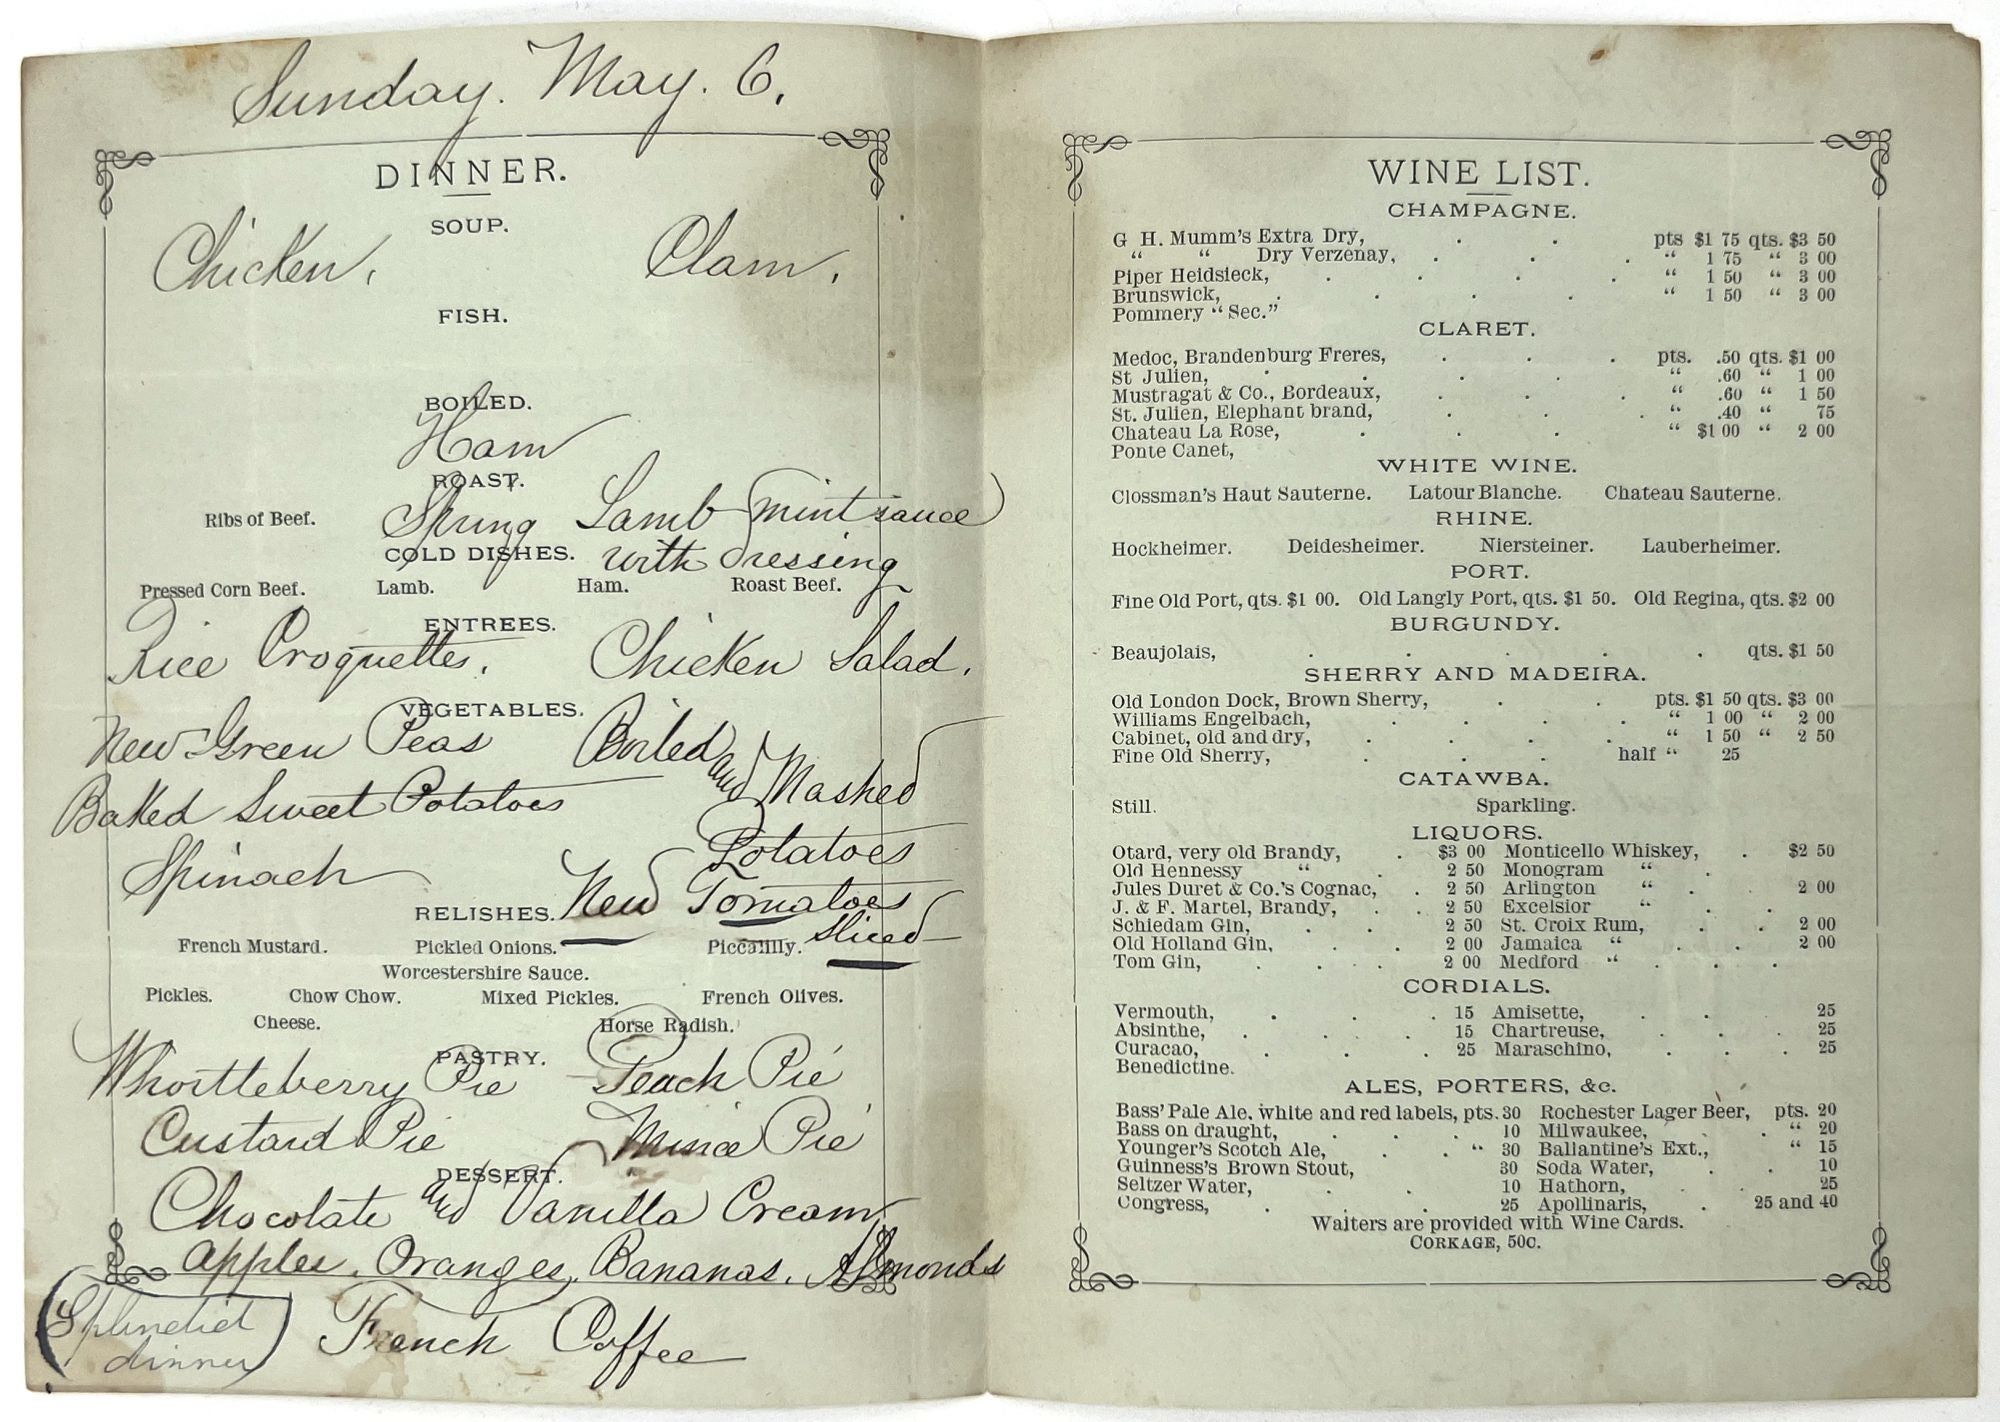 Sunday. May. 6.
DINNER.
SOUP.
Chicken, Clam,
FISH.
BOILED.
Ham
ROAST.
Ribs of Beef. Spring Lamb mint sauce
COLD DISHES. with dressing
Pressed Corn Beef. Lamb. Ham. Roast Beef.
ENTREES.
Rice Croquettes, Chicken Salad,
VEGETABLES.
New Green Peas Boiled and Mashed
Baked Sweet Potatoes
Potatoes
Spinach
RELISHES. New Tomatoes
Sliced
French Mustard. Pickled Onions. Piccalilly.
Worcestershire Sauce.
Pickles. Chow Chow. Mixed Pickles. French Olives.
Cheese. Horse Radish.
PASTRY.
Whortleberry Pie Peach Pie
Custard Pie Mince Pie
DESSERT.
Chocolate and Vanilla Cream
Apples, Oranges, Bananas, Almonds
(Splendid
dinner)
French Coffee
WINE LIST.
CHAMPAGNE.
G H. Mumm's Extra Dry, . . pts $1 75 qts. $3 50
“ “ Dry Verzenay, . . . “ 1 75 “ 3 00
Piper Heidsieck, . . . . “ 1 50 “ 3 00
Brunswick, . . . . “ 1 50 “ 3 00
Pommery “Sec.”
CLARET.
Medoc, Brandenburg Freres, . . . pts. .50 qts. $1 00
St Julien, . . . . “ .60 “ 1 00
Mustragat & Co., Bordeaux, . . . “ .60 “ 1 50
St. Julien, Elephant brand, . . . “ .40 “ 75
Chateau La Rose, . . . “ $1 00 “ 2 00
Ponte Canet,
WHITE WINE.
Clossman's Haut Sauterne. Latour Blanche. Chateau Sauterne.
RHINE.
Hockheimer. Deidesheimer. Niersteiner. Lauberheimer.
PORT.
Fine Old Port, qts. $1 00. Old Langly Port, qts. $1 50. Old Regina, qts. $2 00
BURGUNDY.
Beaujolais, . . . . . qts. $1 50
SHERRY AND MADEIRA.
Old London Dock, Brown Sherry, . . . pts. $1 50 qts. $3 00
Williams Engelbach, . . . . “ 1 00 “ 2 00
Cabinet, old and dry, . . . . “ 1 50 “ 2 50
Fine Old Sherry, . . . half “ 25
CATAWBA.
Still. Sparkling.
LIQUORS.
Otard, very old Brandy, . $3 00 Monticello Whiskey, . $2 50
Old Hennessy “ . 2 50 Monogram “ .
Jules Duret & Co.'s Cognac, . 2 50 Arlington “ . 2 00
J. & F. Martel, Brandy, . . 2 50 Excelsior “ . .
Schiedam Gin, . . . 2 50 St. Croix Rum, . . 2 00
Old Holland Gin, . . . 2 00 Jamaica “ . . 2 00
Tom Gin, . . . 2 00 Medford “ . . .
CORDIALS.
Vermouth, . . . 15 Amisette, . . 25
Absinthe, . . . . 15 Chartreuse, . . . 25
Curacao, . . . 25 Maraschino, . . . 25
Benedictine.
ALES, PORTERS, &c.
Bass' Pale Ale, white and red labels, pts. 30 Rochester Lager Beer, pts. 20
Bass on draught, . . . 10 Milwaukee, . . “ 20
Younger's Scotch Ale, . . “ 30 Ballantine's Ext., “ 15
Guinness's Brown Stout, 30 Soda Water, . . 10
Seltzer Water, . . . 10 Hathorn, . . 25
Congress, . . . 25 Apollinaris, . 25 and 40
Waiters are provided with Wine Cards.
CORKAGE, 50c.